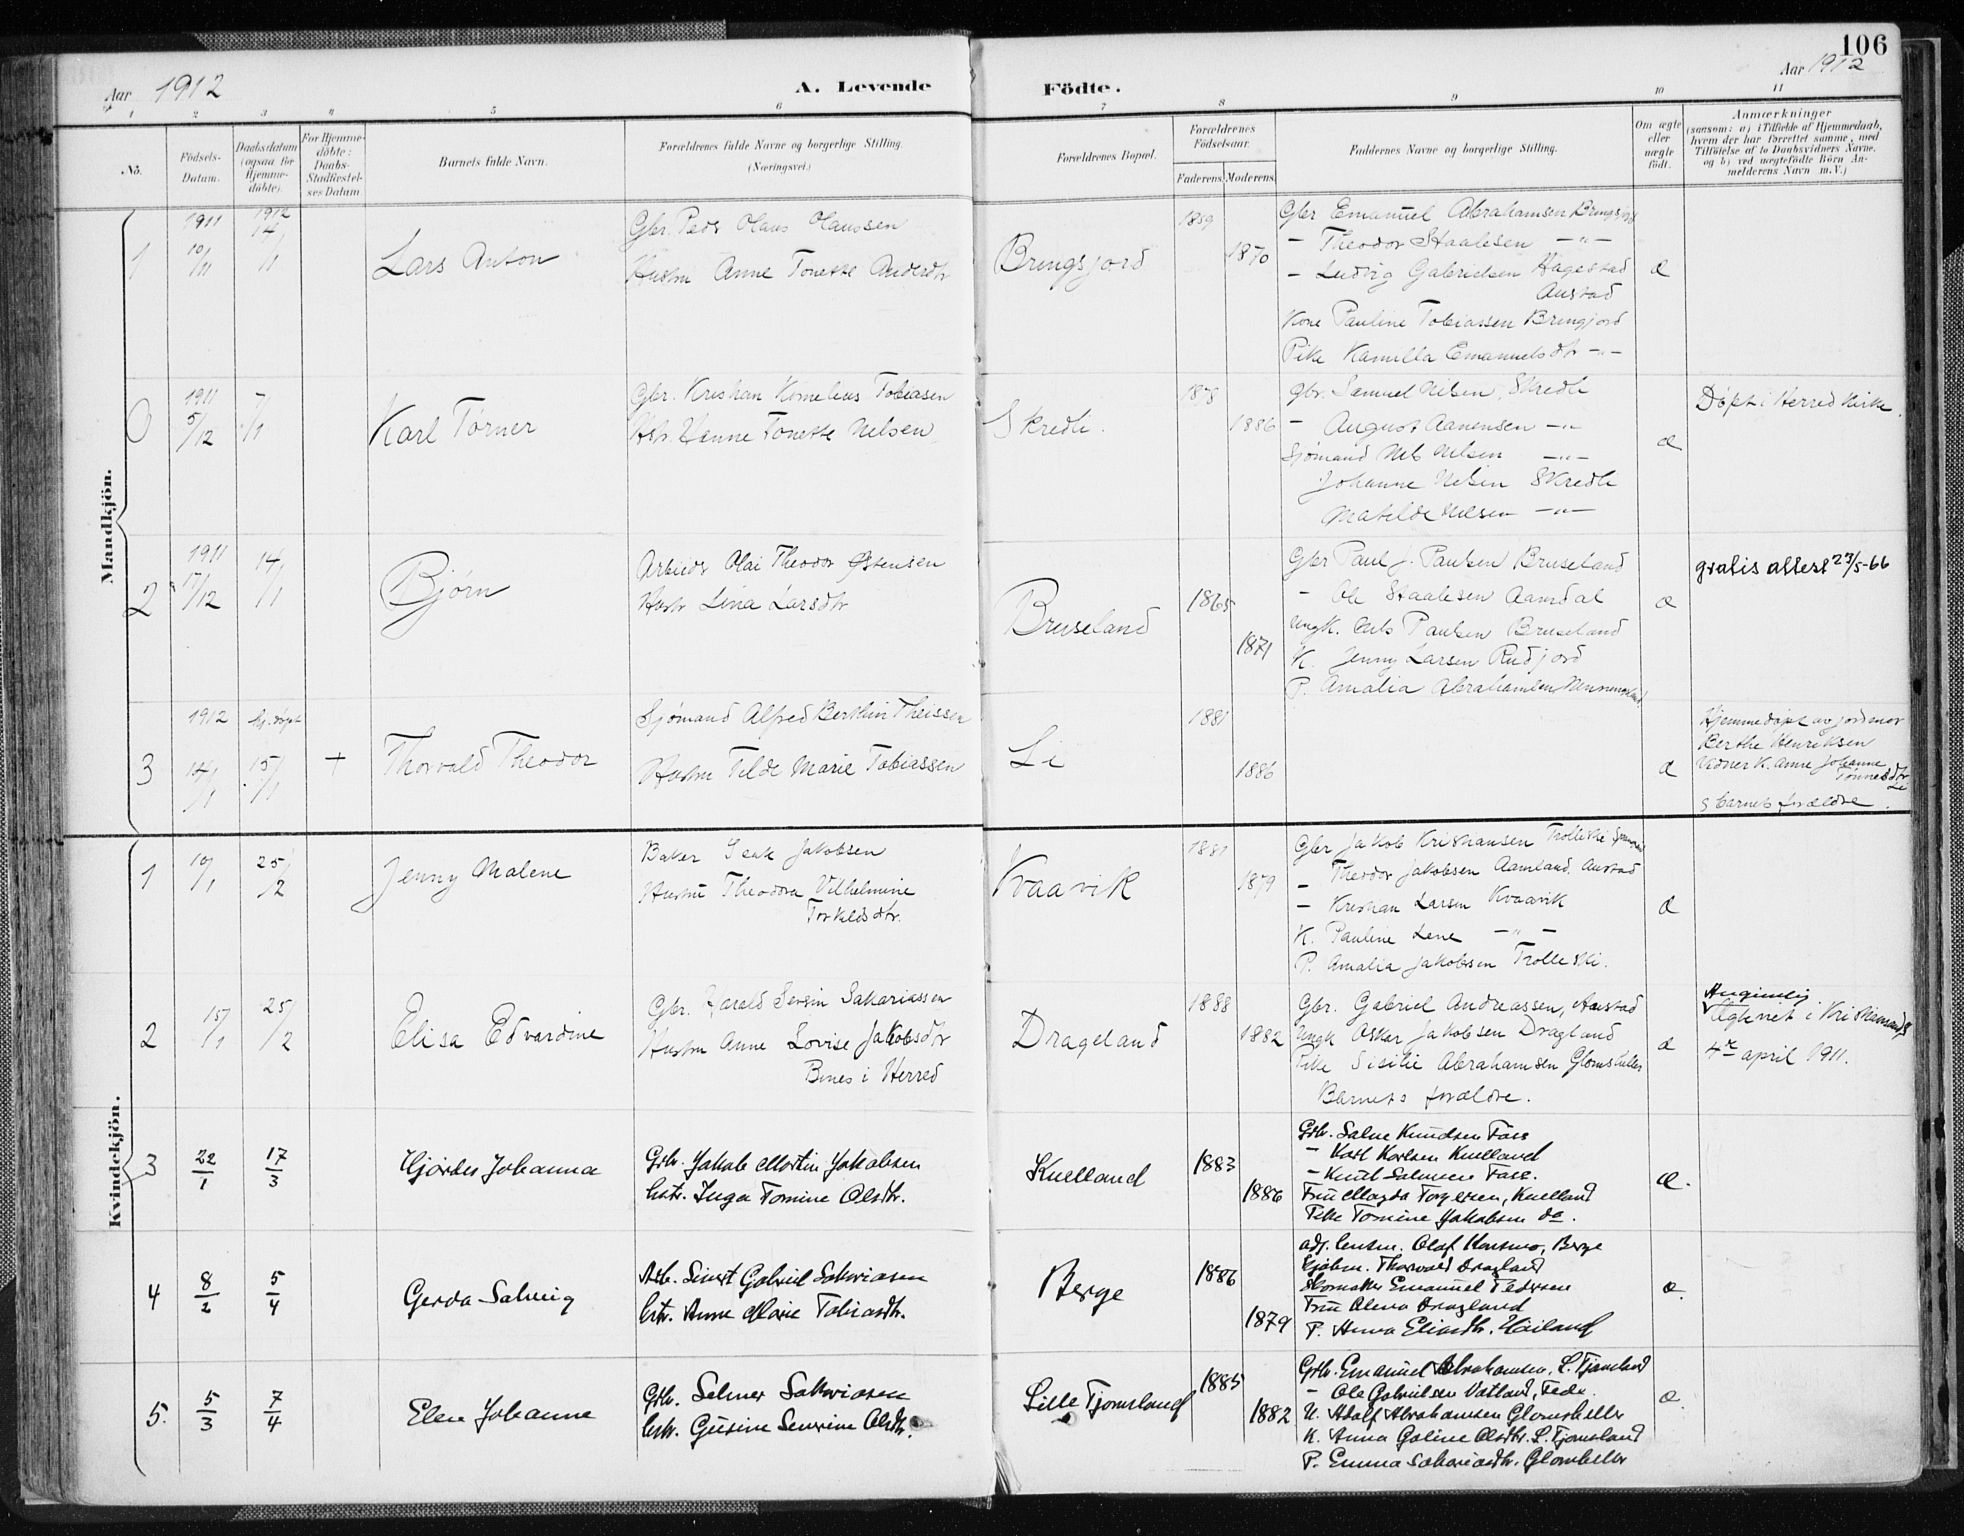 106
Aar 1912
A. Levende
Födte.
Aar 1912
1 2 3 4 5 6 7 8 9 10 11
No.
Födsels-
Datum.
Daabsdatum
(ogsaa för
Hjemme-
döbte).
For Hjemme-
döbte:
Daabs-
Stadfæstel-
ses Datum.
Barnets fulde Navn.
Forældrenes fulde Navne og borgerlige Stilling.
(Næringsvei.)
Forældrenes Bopæl.
Forældrenes
Födselsaar.
Faderens. Moderens.
Faddernes Navne og borgerlige Stilling.
Om ægte
eller
uægte
födt.
Anmærkninger
(saasom: a) i Tilfælde af Hjemmedaab,
hvem der har forrettet samme, med
Tilföielse af to Daabsvidners Navne,
og b) ved uægtefödte Börn An-
melderens Navn m.V.)
Mandkjön.
1
1911
10/11
1912
14/1
Lars Anton
Gbr. Peds Olaus Olaussen
Hustru Anne Tonette Andersdtr
Bringsjord
1859
1870
Gbr Emanuel Abrahamsen Bringsjord
- Theodor Staalesen -"-
- Ludvig Gabrielsen Hagestad
Austad
Kone Pauline Tobiassen Bringjord
Pike Kamilla Emanuelsdtr -"-
æ
0
1911
5/12
7/1
Karl Tørner
Gbr. Kristian Kornelius Tobiasen
Hstr. Hanne Tonette Nilsen
Skredli.
1878
1886
Gbr. Samuel Nilsen, Skredli
- August Aanensen -"-
Sjømand Nils Nilsen -"-
Johanne Nilsen Skredli
Matilde Nilsen -"-
æ
Døpt i Herred Kirke.
2
1911
17/12
14/1
Bjørn
Arbeids Olai Theodor Østensen
Hustr Lina Larsdtr
Bruseland
1865
1871
Gbr Paul J. Paulsen Bruseland
- Ole Staalesen Aamdal
Ungk. Nils Paulsen Bruseland
K. Jenny Larsen Rudjord
P. Amalia Abrahamsen
æ
gratis attest 23/5-66
3
1912
14/1
Hj.døpt
15/1
+
Thorvald Theodor
Sjømand Alfred Berthin Theissen
Hustru Tilde Marie Tobiassen
Li
1881
1886
æ
Hjemmedøpt av jordmor
Berthe Henriksen
Vidner K. Anne Johanne
Tønnesdtr
Li
& barnets forældre.
Kvindekjön.
1
10/1
25/2
Jenny Malene
Baker Isak Jakobsen
Hustru Theodora Vilhelmine
Torkeldsdtr.
Kvaavik
1881
1879
Gbr Jakob Kristiansen Trolleski
- Theodor Jakobsen Aamland. Austad
- Kristian Larsen Kvaavik
K. Pauline Lene -"-
P. Amalia Jakobsen Trolleski.
æ
2
15/1
25/2
Elisa Edvardine
Gbr. Harald Sersin Sakariassen
Hustru Anne Lovise Jakobsdtr
Boues i Herred
Drageland
1888
1882
Gbr. Gabriel Andreassen, Austad
Ungk Oskar Jakobsen Dragland
Pike Sisilie Abrahamsen Glomsheller
Barnets forældre.
æ
Angivelig
Ægteviet i Kristiansands
4de april 1911.
3
22/1
17/3
Hjørdis Johanna
Grb. Jakob Martin Jakobsen
hstr. Inga Tomine Olsdtr.
Kvelland
1883
1886
Grb. Salve Knudsen Foss
- Karl Karlsen Kvelland
- Knut Salvesen Foss.
Fru Magda Torgersen, Kvelland
Pike Tomine Jakobsen do.
æ.
4
8/2
5/4
Gerda Solveig
Arb. Sivert Gabriel Sakariasen
hstr. Anne Marie Tobiasdtr.
Berge
1886
1879
adj. lensm. Olaf Homsmo, Berge
kjøbm. Thorvald Dragland
Skomaker Emanuel Pedersen
Fru Olena Dragland
P. Anna Eliasdtr. Høiland
æ.
5.
5/3
7/4
Elen Johanne
Grb. Selmer Sakariasen
hstr. Gusine Severine Olsdtr.
Lille Tjomsland
1885
1882
Grb. Emanuel Abrahamsen, L. Tjomsland
- Ole Gabrielsen Vatland, Fede.
U. Adolf Abrahamsen Glomsheller
K. Anna Goline Olsdtr. L. Tjomsland
P. Emma Sakariasdtr. Glomsheller
æ.